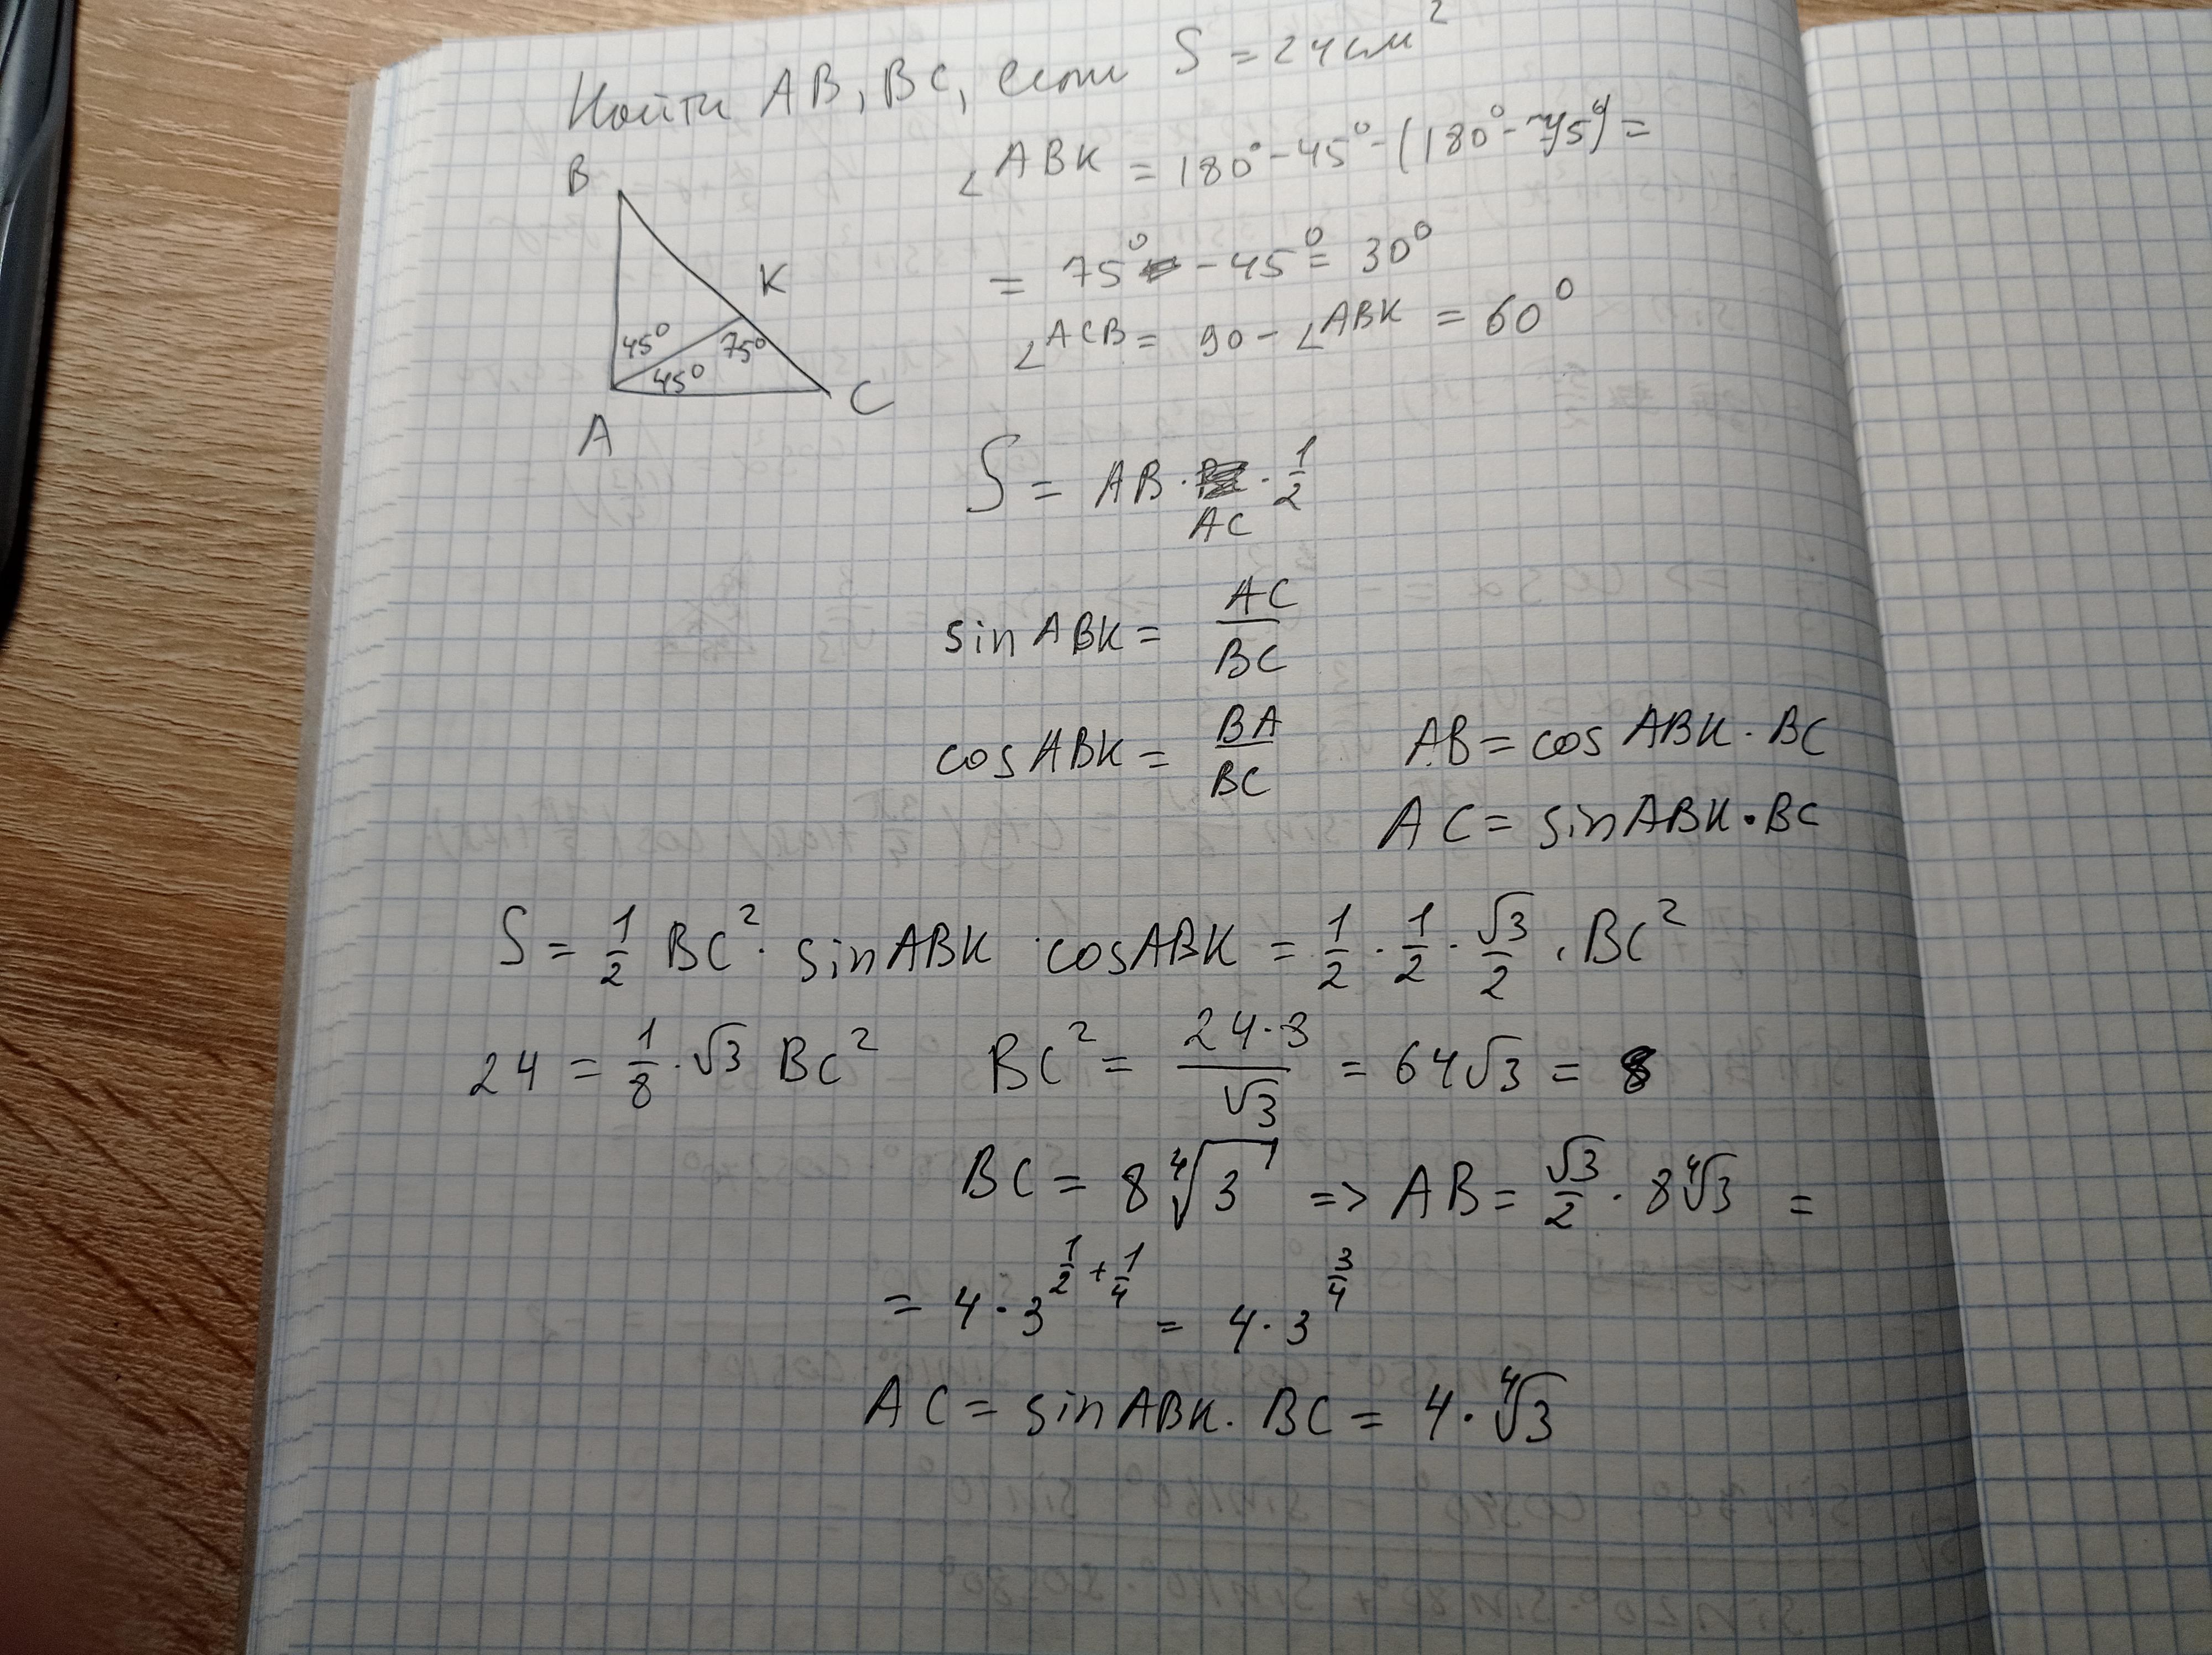 Найти AB, BC, если S = 24 см²
∠ABK = 180° - 45° - (180° - 75°) =
= 75° - 45° = 30°
∠ACB = 90 - ∠ABK = 60°
B
K
45°
75°
45°
A
C
S = AB · AC · 1/2
sin ABK = AC/BC
cos ABK = BA/BC
AB = cos ABK · BC
AC = sin ABK · BC
S = 1/2 BC² · sin ABK · cos ABK = 1/2 · 1/2 · √3/2 · BC²
24 = 1/8 · √3 BC² BC² = 24·8/√3 = 64√3 = 8
BC = 8∜3 => AB = √3/2 · 8∜3 =
= 4 · 3^(1/2 + 1/4) = 4 · 3^(3/4)
AC = sin ABK · BC = 4 · ∜3